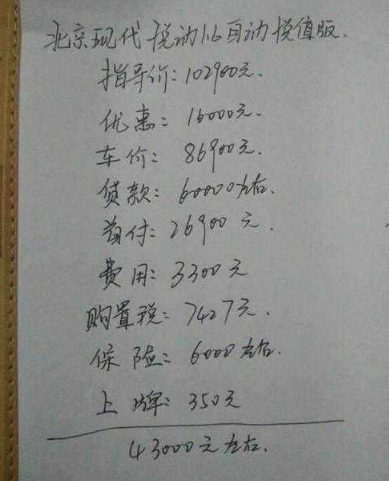 北京现代悦动1.6自动悦值版.
指导价: 102900元.
优惠: 16000元.
车价: 86900元.
贷款: 60000左右.
首付: 26900元.
费用: 3300元
购置税: 7427元.
保险: 6000左右.
上牌: 350元
43000元左右.